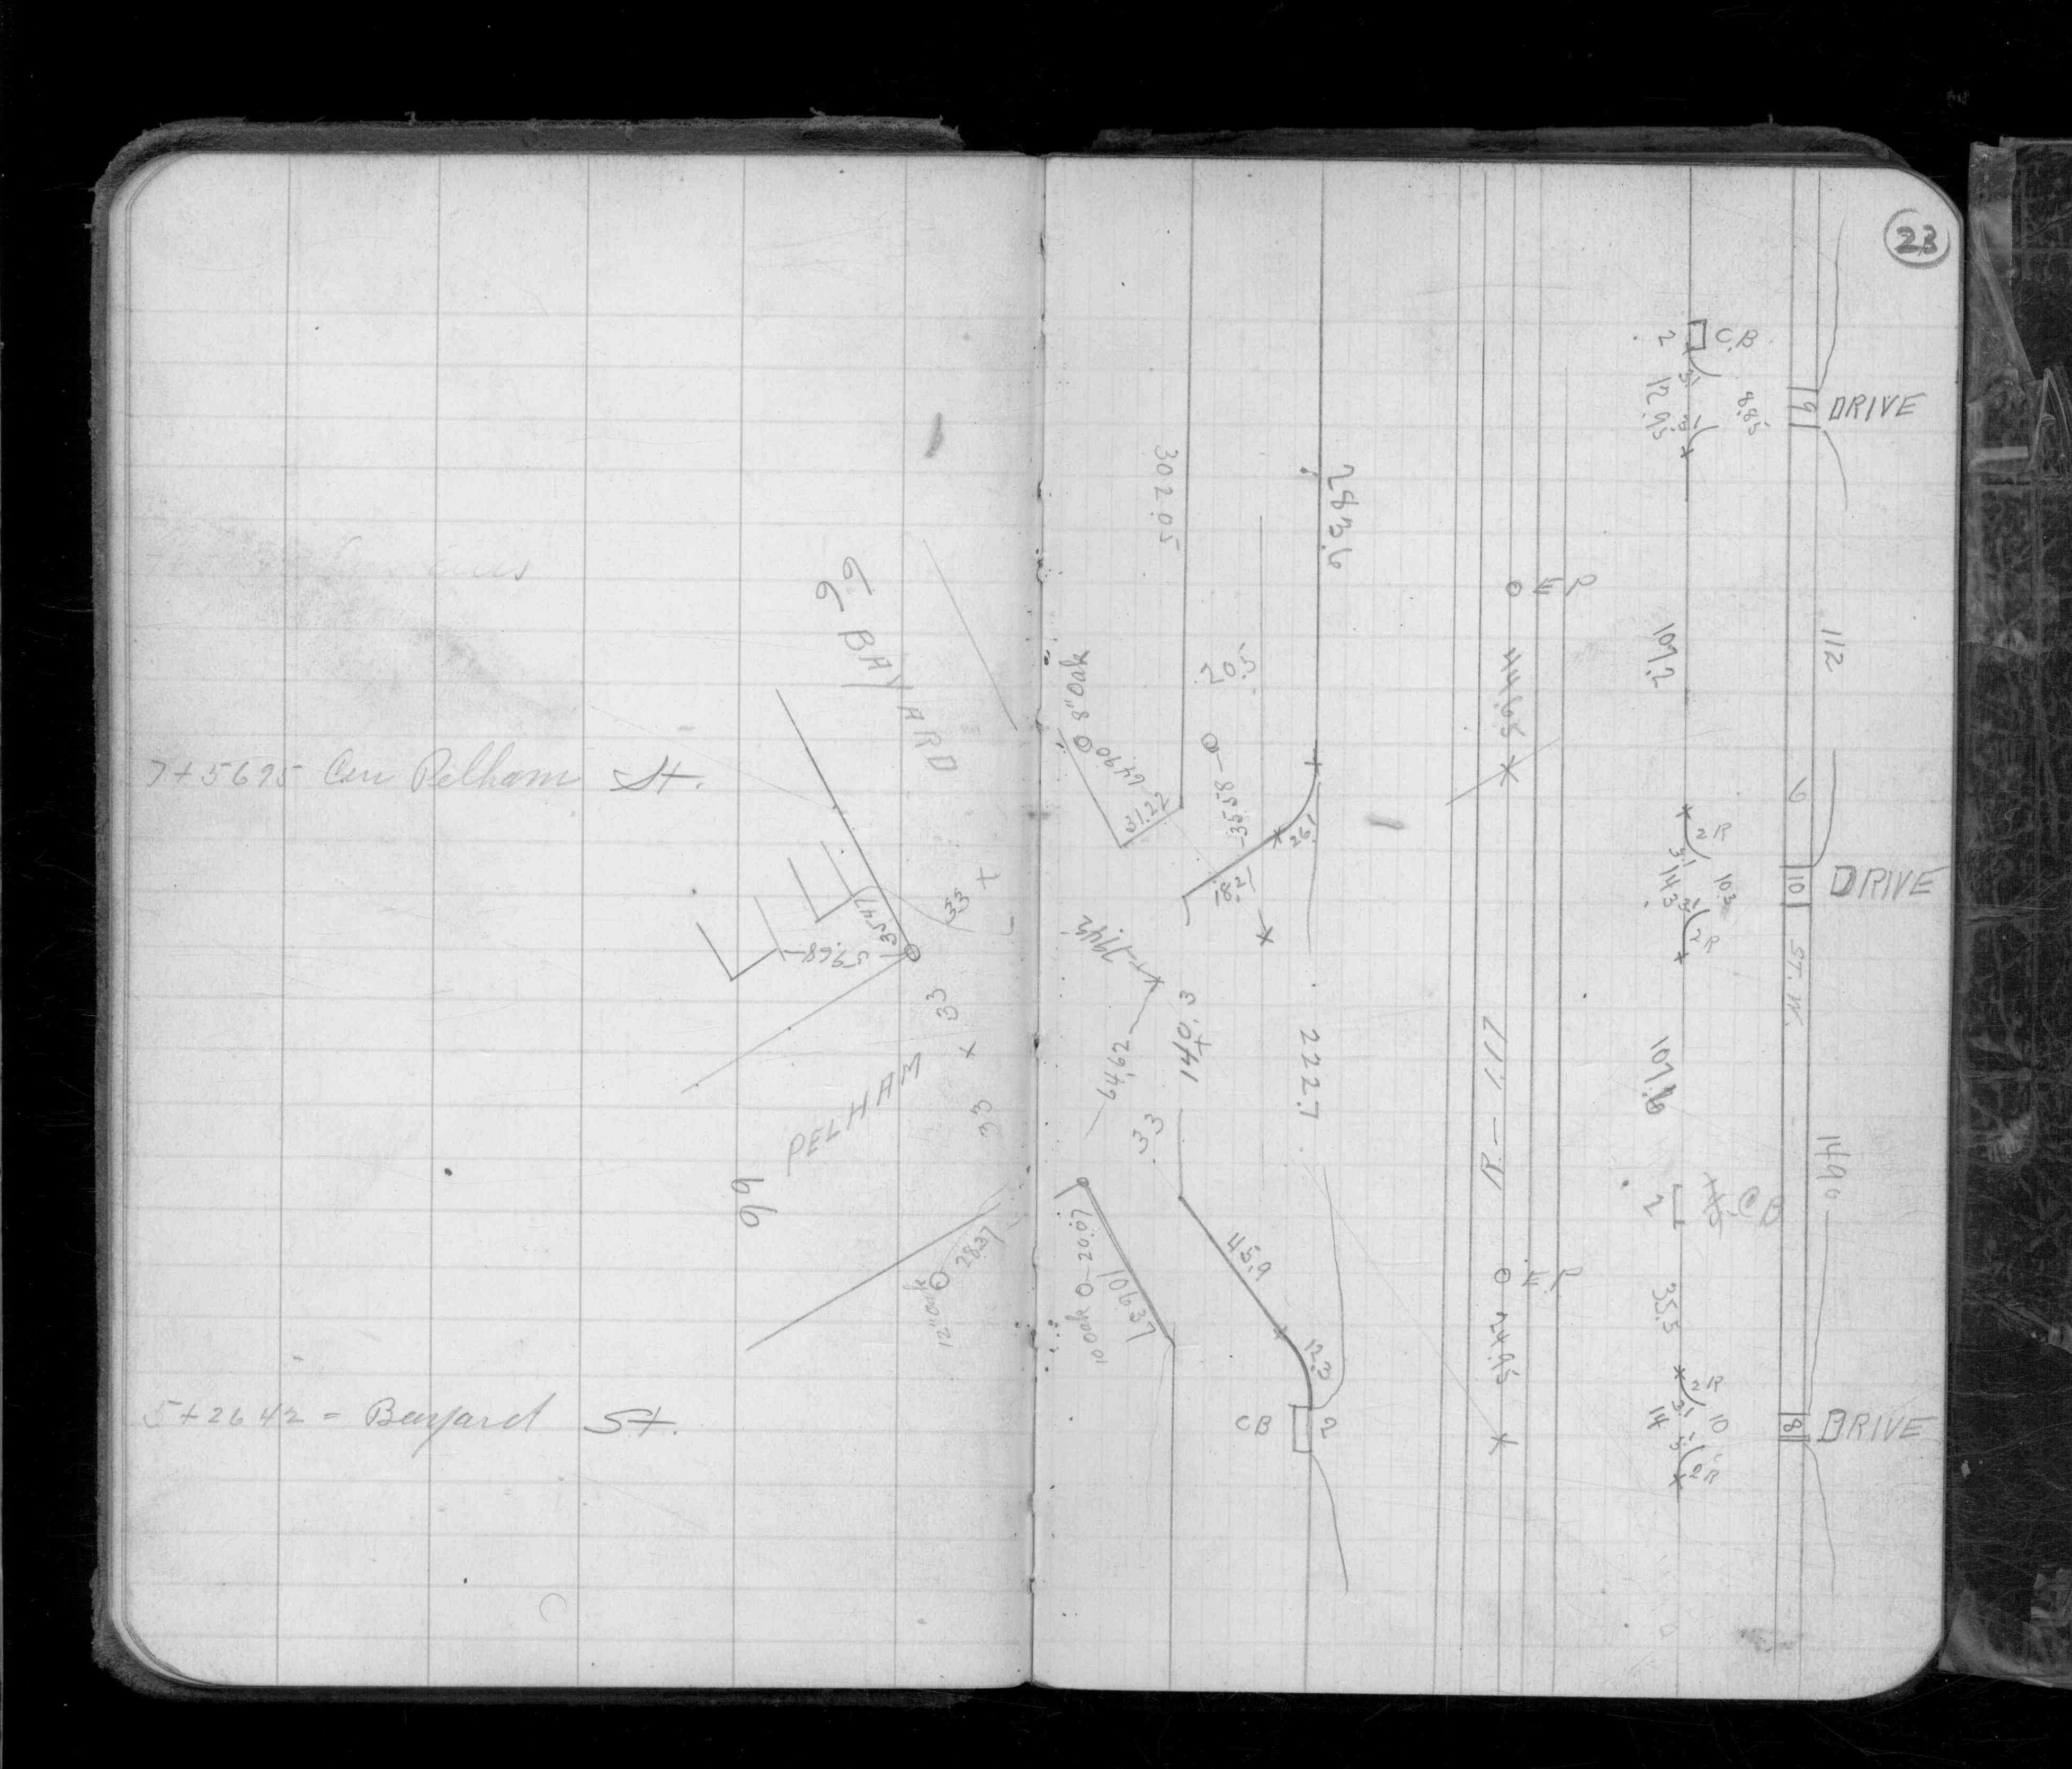 23
2 C.B.
3.1
12.95
3.1
8.85
9 DRIVE
302.05
283.6
E P
107.2
112
99
BAYARD
8" Oak
64.90
31.22
20.5
35.58
26.1
18.21
144.95
7+5695 Cen Pelham St.
2R
3.1
14.3
3.1
10.3
2R
10 DRIVE
ST. W.
35.47
59.68
33
33
33
PELHAM
66
79.42
64.62
140.3
33
222.7
R-1.117
107.8
149.0
2 CB
12" Oak
28.37
10 Oak
20.07
73.901
45.9
12.3
CB 2
E P
124.95
35.5
2R
3.1
14
10
3.1
2R
8 DRIVE
5+2642 = Bayard St.